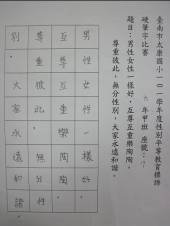 臺南市太康國小一○一學年度性別平等教育標語
硬筆字比賽 六年甲班 座號:
題目:男性女性一樣好,互尊互重樂陶陶,
尊重彼此,無分性別,大家永遠和諧。
男性女性一樣好
互尊互重樂陶陶
尊重彼此無分性
別大家永遠和諧